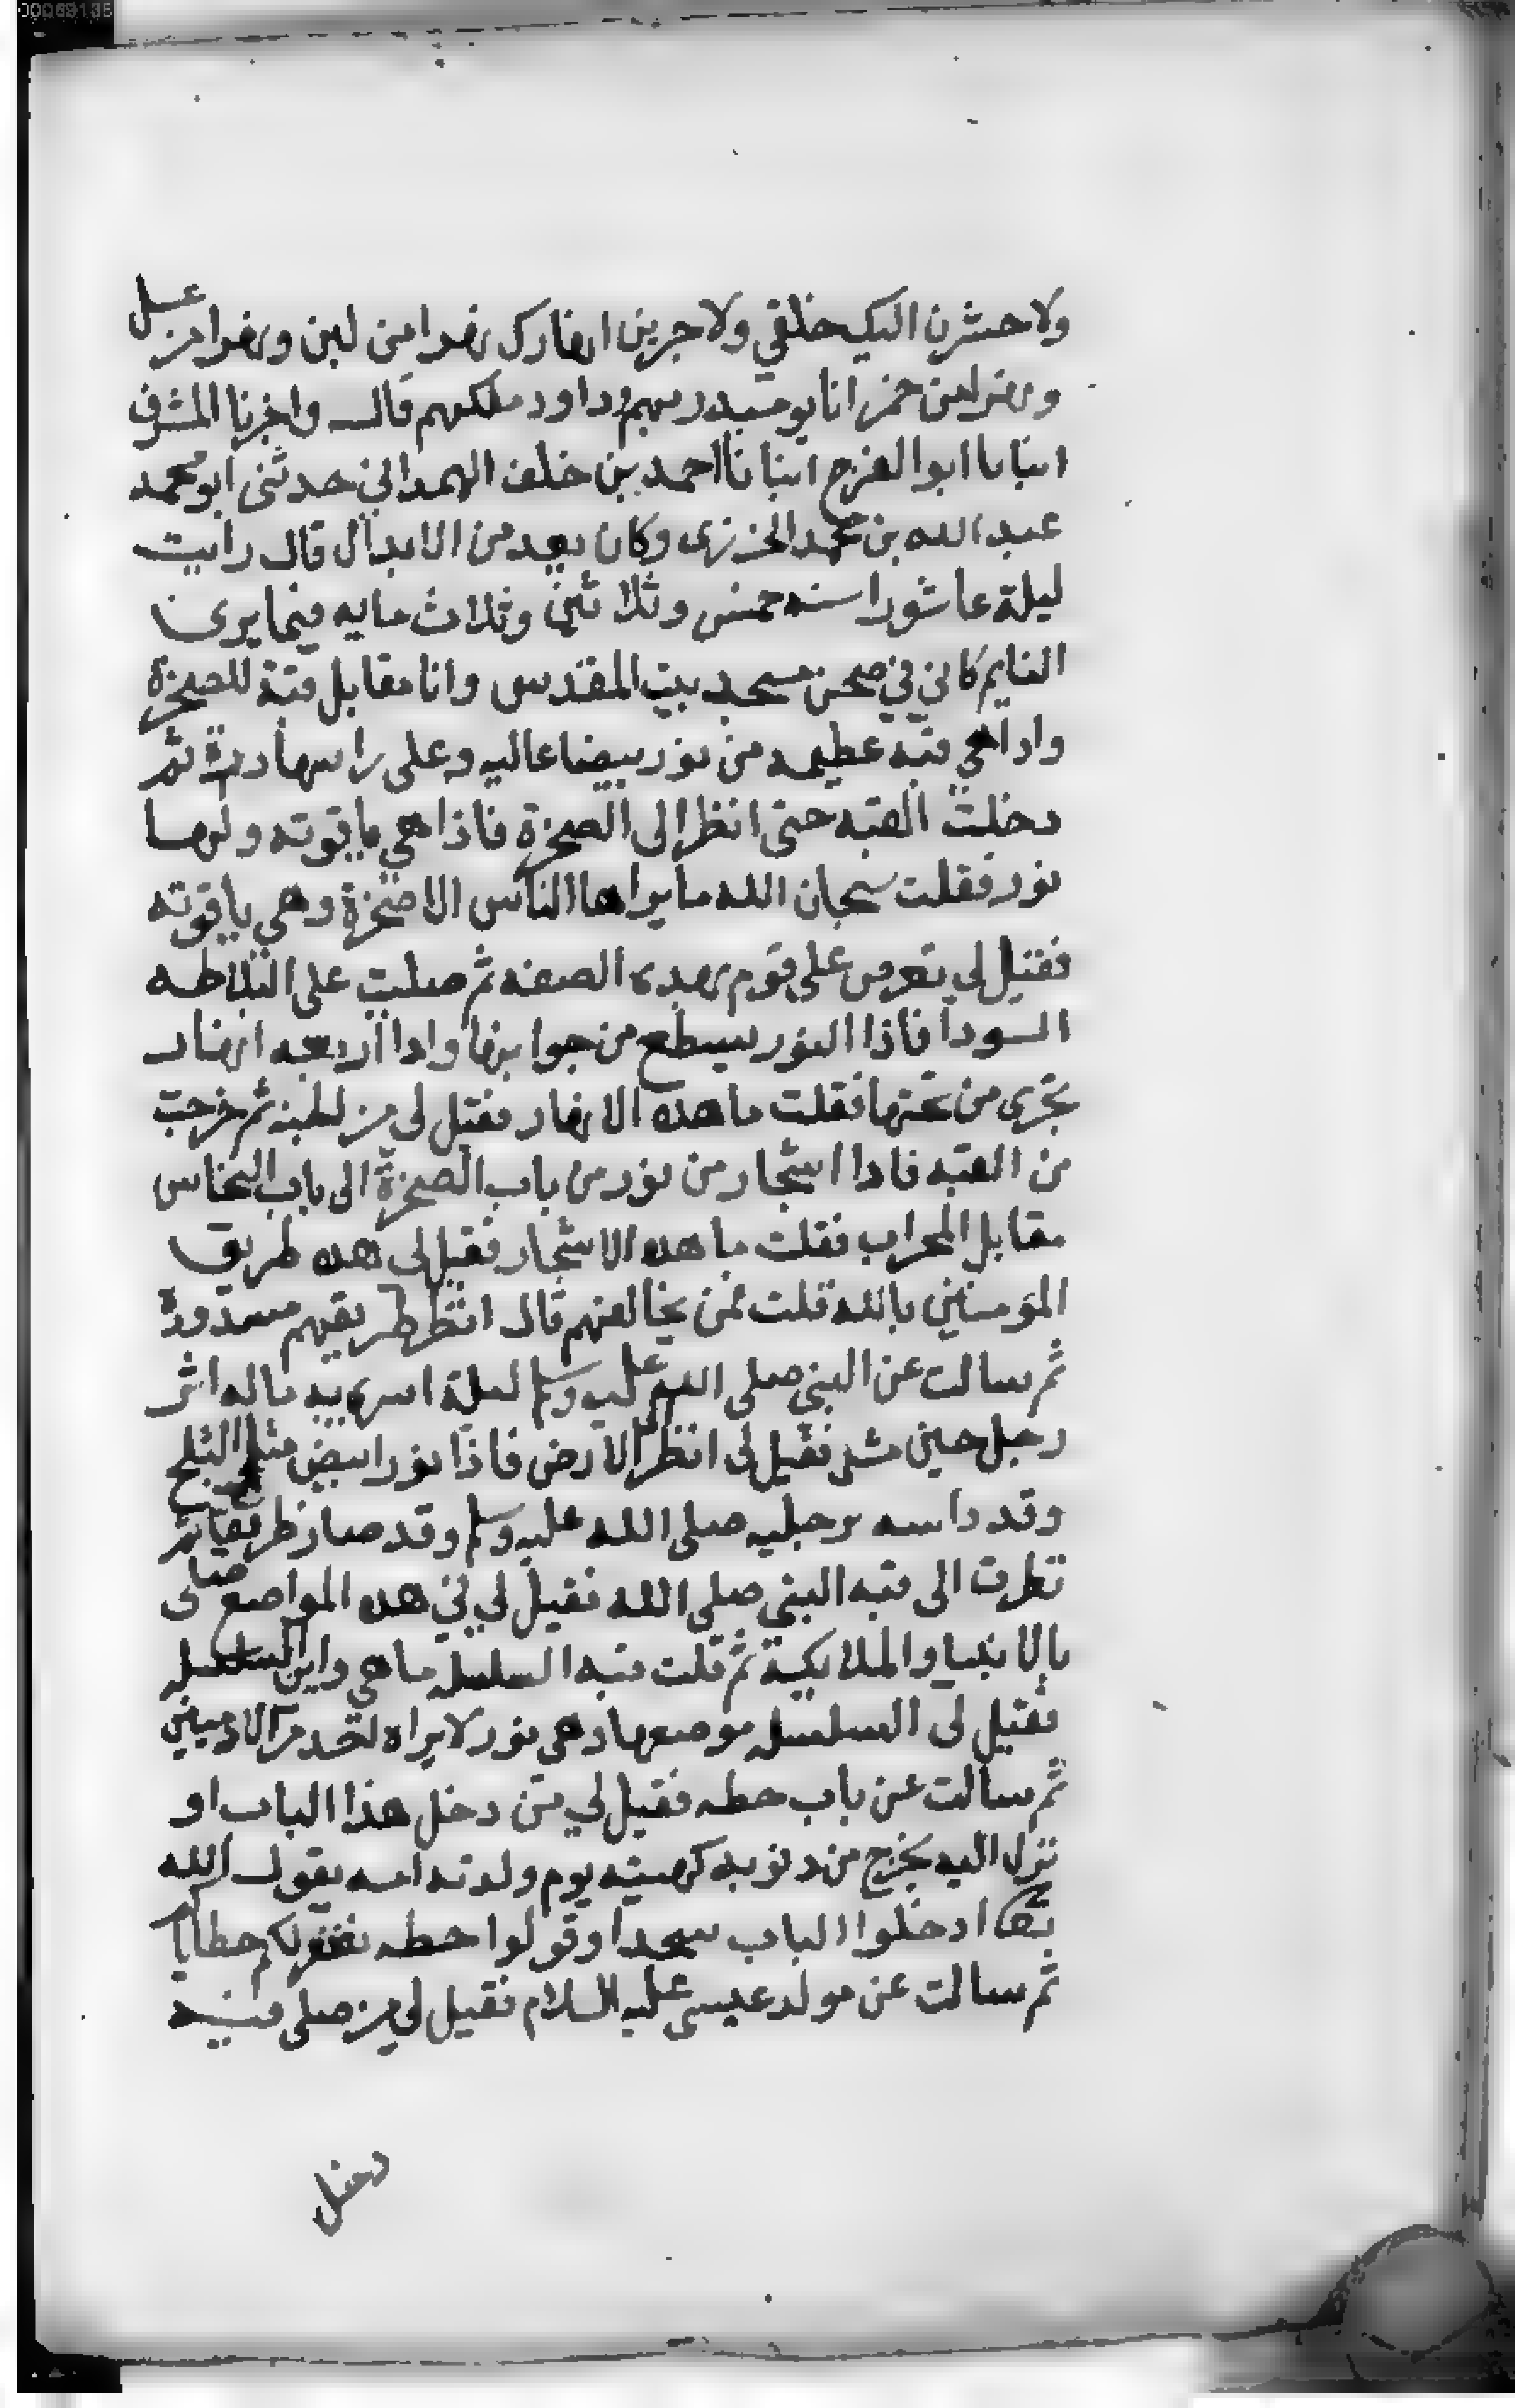 00069135
ولاحشرن اليك خلقي ولاجرين انهارك نهرا من لبن ونهرا من عسل
ونهرا من خمر انا يوميد ربهم وداود ملكهم قال واخبرنا المشرف
انبانا ابو الفرج انبانا احمد بن خلف الهمداني حدثنى ابو محمد
عبد الله بن محمد وكان يعد من الابدال قال رايت
ليلة عاشورا سنه خمس وثلاثين وثلاث مايه فيما يرى
النايم كاني في صحن مسجد بيت المقدس وانا مقابل قبة للصخرة
واذا هي قبه عظيمه من نور بيضا عاليه وعلى راسها درة ثم
دخلت القبه حتى انظر الى الصخرة فاذا هي ياقوته ولها
نور فقلت سبحان الله ما يراها الناس الا صخرة وهي ياقوته
فقيل لي على قوم بهده الصفه ثم صليت على البلاطه
السودا فاذا النور يسطع من جوانبها واذا اربعه انهار
تجرى من تحتها فقلت ما هده الانهار فقيل لي من الجنه ثم خرجت
من القبه فاذا اشجار من نور من باب الصخرة الى باب النحاس
مقابل المحراب فقلت ما هده الاشجار فقيل لى هده طريق
المومنين بالله قلت فمن يخالفهم قال انظر طريقهم مسدودة
ثم سالت عن النبي صلى الله عليه وسلم ليلة اسرى به ماله اثر
رجل حين مشى فقيل لى انظر الارض فاذا نور ابيض مثل الثلج
وقد داسه برجليه صلى الله عليه وسلم وقد صار طريقا ثم
نظرت الى قبه النبي صلى الله فقيل لي في هده المواضع صلى
بالانبيا والملايكية ثم قلت قبه السلسله ما هي واين السلسله
فقيل لى السلسله موضعها وهي نور لا يراه احد من الادميين
ثم سالت عن باب حطه فقيل لي من دخل هذا الباب او
نزل اليه يخرج من دنوبه كهيته يوم ولدته امه يقول الله
تعا ادخلوا الباب سجدا وقولوا حطه نغفر لكم خطاياكم
ثم سالت عن مولد عيسى عليه السلام فقيل لي من صلى فيه
دخل